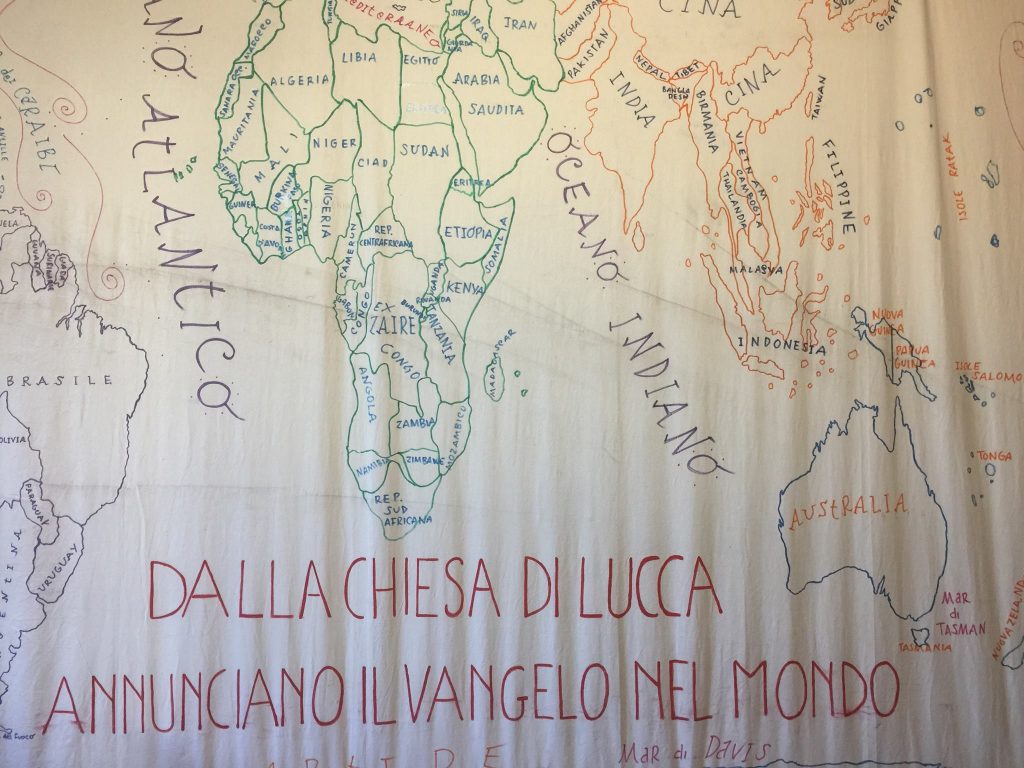 MEDITERRANEO
SIRIA
IRAQ
IRAN
AFGHANISTAN
PAKISTAN
CINA
GIAPP
MAROCCO
TUNISIA
ALGERIA
LIBIA
EGITTO
GIORDANIA
ARABIA
SAUDITA
INDIA
NEPAL
TIBET
BANGLA
DESH
BIRMANIA
CINA
TAIWAN
NO ATLANTICO
dei CARAIBI
SAHARA
MAURITANIA
MALI
NIGER
CIAD
SUDAN
ERITREA
ETIOPIA
SOMALIA
SENEGAL
GUINEA
BURKINA
COSTA
D'AVO
GHANA
TOGO
NIGERIA
CAMERUN
REP.
CENTRAFRICANA
UGANDA
KENYA
GABON
CONGO
EX
ZAIRE
CONGO
RUWANDA
BURUNDI
TANZANIA
ANGOLA
ZAMBIA
MOZZAMBICO
MADAGASPAR
NAMIBIA
ZIMBANE
REP.
SUD
AFRICANA
OCEANO INDIANO
VIETNAM
CAMBOGIA
THAILANDIA
FILIPPINE
MALASYA
INDONESIA
ISOLE RATAK
NUOVA
GUINEA
PAPUA
GUINEA
ISOLE
SALOMO
TONGA
AUSTRALIA
MAR
di
TASMAN
TASMANIA
NUOVA ZELAND
UELA
GUYANA
SURINAME
BRASILE
OLIVIA
PARAGUAY
URUGUAY
ENTINA
DALLA CHIESA DI LUCCA
ANNUNCIANO IL VANGELO NEL MONDO
del FUOCO
MAR di DAVIS